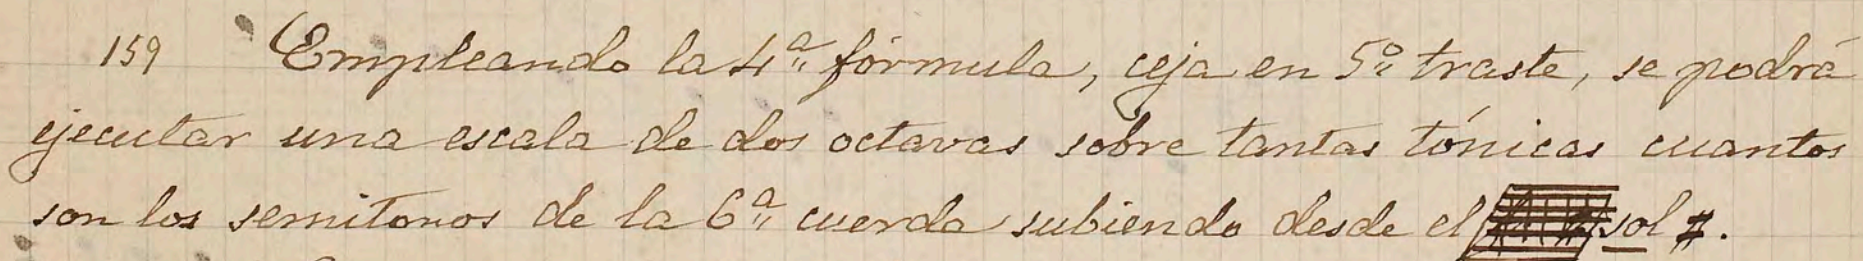 159 Empleando la 4ª fórmula, ceja en 5º traste, se podrá
ejecutar una escala de dos octavas sobre tantas tónicas cuantos
son los semitonos de la 6ª cuerda subiendo desde el sol #.